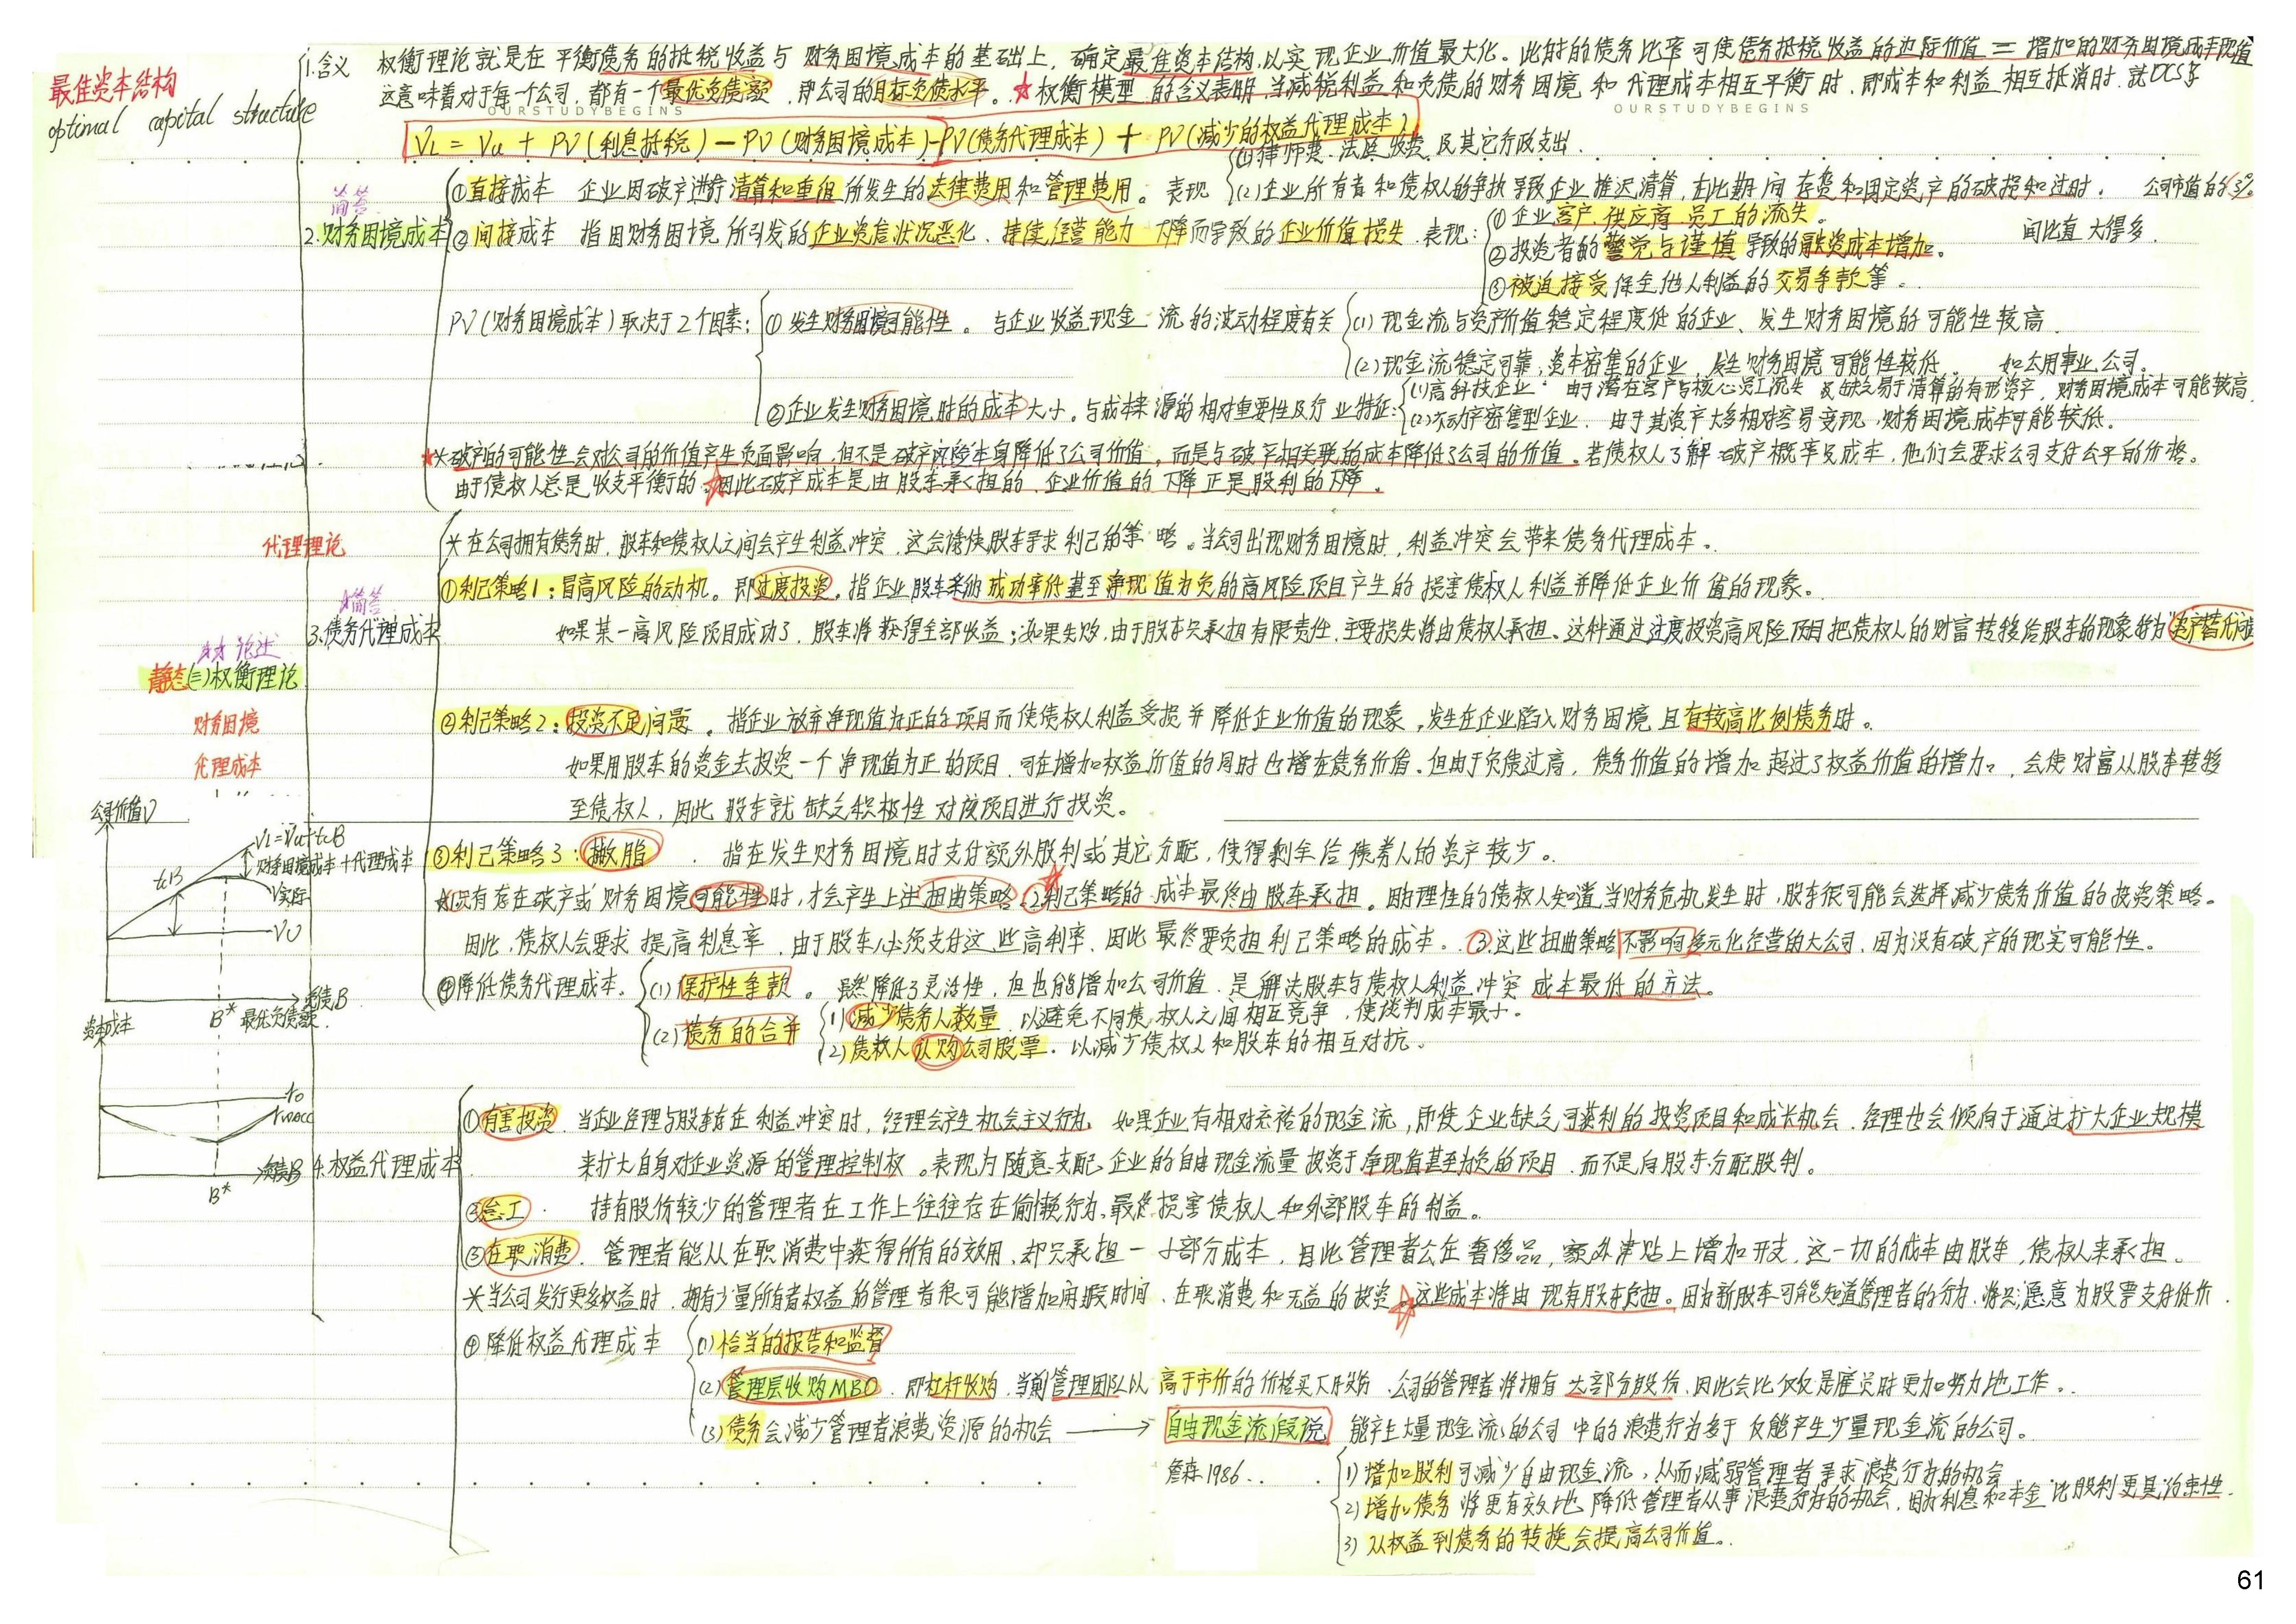 最佳资本结构
optimal capital structure
1.含义 权衡理论就是在平衡债务的抵税收益与财务困境成本的基础上，确定最佳资本结构以实现企业价值最大化。此时的债务比率可使债务抵税收益的边际价值=增加的财务困境成本现值
这意味着对于每一个公司，都有一个最优负债额，即公司的目标负债水平。★权衡模型的含义表明，当减税利益和负债的财务困境和代理成本相互平衡时，即成本和利益相互抵消时，就OCS了
OURSTUDYBEGINS OURSTUDYBEGINS
VL = Vu + PV(利息抵税) - PV(财务困境成本) - PV(债务代理成本) + PV(减少的权益代理成本)
简答
2.财务困境成本
①直接成本 企业因破产进行清算和重组所发生的法律费用和管理费用。表现
(1)律师费、法庭收费及其它行政支出.
(2)企业所有者和债权人的争执导致企业推迟清算,在此期间存货和固定资产的破损和过时. 公司市值的3%
②间接成本 指因财务困境所引发的企业资信状况恶化、持续经营能力下降而导致的企业价值损失.表现:
①企业客户、供应商、员工的流失。
②投资者的警觉与谨慎导致的融资成本增加。
③被迫接受保全他人利益的交易条款等.
间比直大得多.
PV(财务困境成本)取决于2个因素:
①发生财务困境可能性。与企业收益现金流的波动程度有关
(1)现金流与资产价值稳定程度低的企业、发生财务困境的可能性较高.
(2)现金流稳定可靠,资本密集的企业,发生财务困境可能性较低. 如公用事业公司.
②企业发生财务困境时的成本大小.与成本来源的相对重要性及行业特征:
(1)高科技企业.由于潜在客户与核心员工流失及缺乏易于清算的有形资产,财务困境成本可能较高.
(2)不动产密集型企业.由于其资产大多相对容易变现,财务困境成本可能较低.
*破产的可能性会对公司的价值产生负面影响,但不是破产风险本身降低了公司价值,而是与破产相关联的成本降低了公司的价值.若债权人了解破产概率及成本,他们会要求公司支付公平的价格。
由于债权人总是收支平衡的,★因此破产成本是由股东承担的.企业价值的下降正是股利的下降.
代理理论
*在公司拥有债务时,股东和债权人之间会产生利益冲突,这会诱使股东寻求利己的策略。当公司出现财务困境时,利益冲突会带来债务代理成本.
简答
3.债务代理成本
①利己策略1:冒高风险的动机。即过度投资,指企业股东采纳成功率低甚至净现值为负的高风险项目产生的损害债权人利益并降低企业价值的现象。
如果某一高风险项目成功了,股东将获得全部收益;如果失败,由于股东只承担有限责任,主要损失将由债权人承担.这种通过过度投资高风险项目把债权人的财富转移给股东的现象称为"资产替代问题
论述
静态(三)权衡理论
财务困境
代理成本
②利己策略2:投资不足问题。指企业放弃净现值为正的项目而使债权人利益受损并降低企业价值的现象,发生在企业陷入财务困境且有较高比例债务时。
如果用股东的资金去投资一个净现值为正的项目,可在增加权益价值的同时也增在债务价值.但由于负债过高,债务价值的增加超过了权益价值的增加,会使财富从股东转移
至债权人,因此股东就缺乏积极性对该项目进行投资。
③利己策略3:撇脂. 指在发生财务困境时支付额外股利或其它分配,使得剩余给债券人的资产较少。
①只有存在破产或财务困境可能性时,才会产生上述扭曲策略②利己策略的成本最终由股东承担。因理性的债权人知道,当财务危机发生时,股东很可能会选择减少债务价值的投资策略。
因此,债权人会要求提高利息率.由于股东必须支付这些高利率,因此最终要负担利己策略的成本。③这些扭曲策略不影响多元化经营的大公司,因为没有破产的现实可能性。
④降低债务代理成本.
(1)保护性条款。虽然降低了灵活性,但也能增加公司价值.是解决股东与债权人利益冲突成本最低的方法。
(2)债务的合并
1)减少债务人数量,以避免不同债权人之间相互竞争,使谈判成本最小.
2)债权人认购公司股票.以减少债权人和股东的相互对抗.
公司价值V
VL=Vu+tcB
财务困境成本+代理成本
tcB
V实际
VU
负债B
B* 最优负债额.
资本成本
r0
rWACC
负债B
B*
4.权益代理成本
①有害投资.当企业经理与股东存在利益冲突时,经理会产生机会主义行为.如果企业有相对充裕的现金流,即使企业缺乏可获利的投资项目和成长机会.经理也会倾向于通过扩大企业规模
来扩大自身对企业资源的管理控制权.表现为随意支配企业的自由现金流量投资于净现值甚至为负的项目,而不是向股东分配股利。
②怠工. 持有股份较少的管理者在工作上往往存在偷懒行为,最终损害债权人和外部股东的利益。
③在职消费.管理者能从在职消费中获得所有的效用,却只承担一小部分成本,因此管理者会在奢侈品,额外津贴上增加开支,这一切的成本由股东,债权人来承担.
*当公司发行更多权益时,拥有少量所有者权益的管理者很可能增加闲暇时间、在职消费和无益的投资.☆这些成本将由现有股东负担。因为新股东可能知道管理者的行为,将只愿意为股票支付低价.
④降低权益代理成本
(1)恰当的报告和监督
(2)管理层收购MBO.即杠杆收购,当前管理团队以高于市价的价格买下股份.公司的管理者将拥有大部分股份,因此会比仅仅是雇员时更加努力地工作.
(3)债务会减少管理者浪费资源的机会 → 自由现金流假说 能产生大量现金流的公司中的浪费行为多于仅能产生少量现金流的公司.
詹森1986..
1)增加股利可减少自由现金流,从而减弱管理者寻求浪费行为的机会
2)增加债务将更有效地降低管理者从事浪费行为的机会,因为利息和本金比股利更具约束性.
3)从权益到债务的转换会提高公司价值.
61